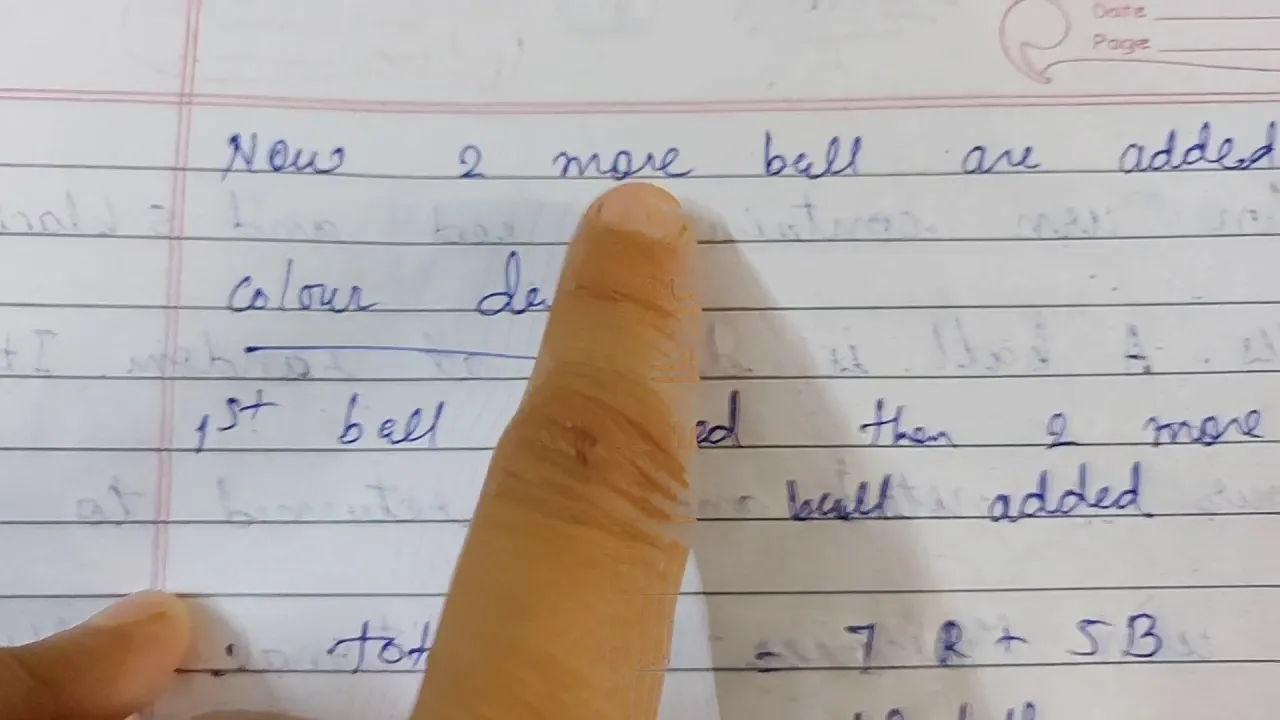 Date
Page
Now 2 more ball are added
colour
1st ball then 2 more
ball added
: = 7 R + 5B